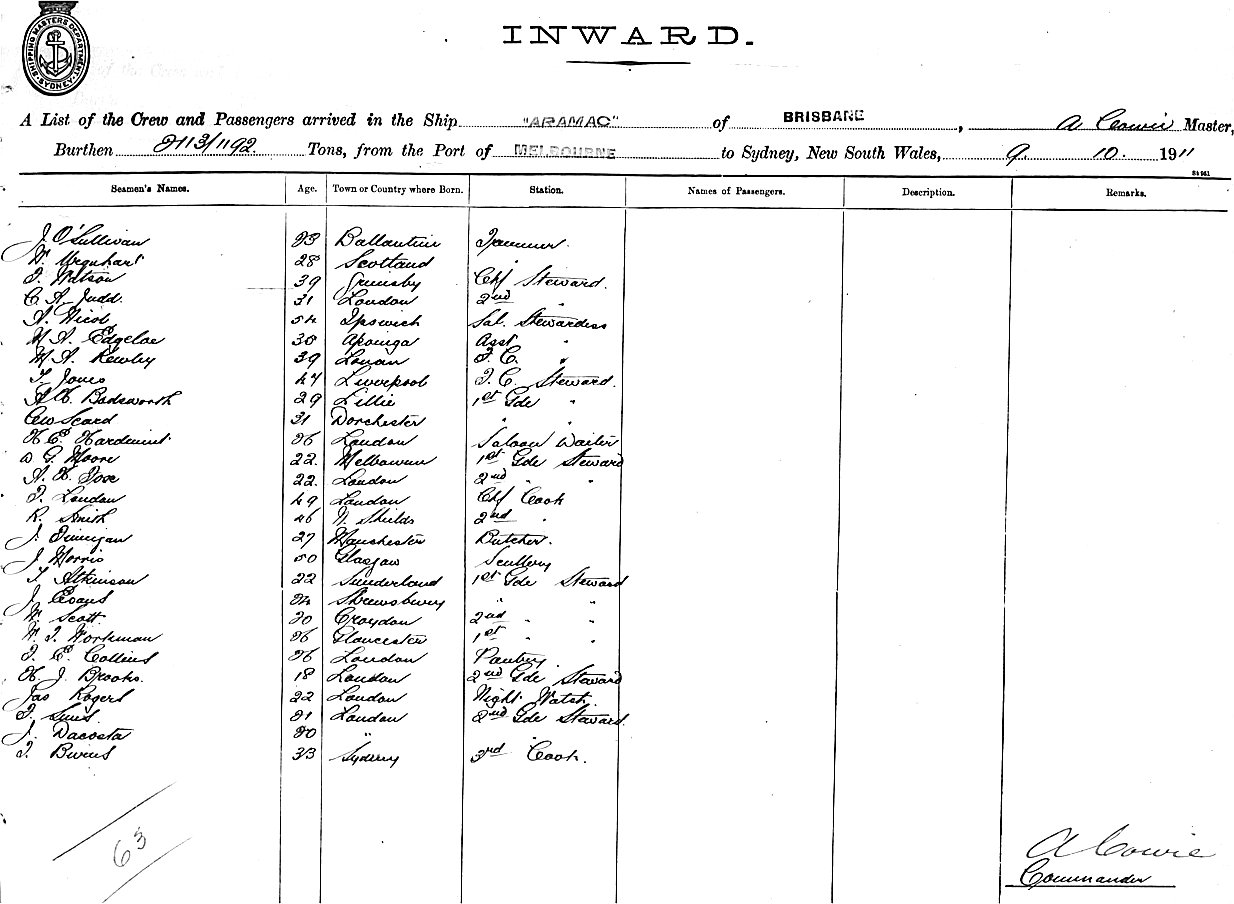 SHIPPING MASTERS DEPARTMENT. SYDNEY.
INWARD.
A List of the Crew and Passengers arrived in the Ship "ARAMAC" of BRISBANE, A Cowie Master,
Burthen 2113/1192 Tons, from the Port of MELBOURNE to Sydney, New South Wales, 9. 10. 1911
Seamen's Names. Age. Town or Country where Born. Station. Names of Passengers. Description. Remarks.
J O'Sullivan 23 Trimmer.
W. Urquhart 28 Scotland "
T. Watson 39 Grimsby Chf Steward.
C. A. Judd. 31 London 2nd "
A. Nicol 54 Ipswich Sal. Stewardess
M A. Edgeloe 30 Asst "
M A. Kewley 39 T. C. "
T. Jones 47 Liverpool T. C. Steward.
A H. Badsworth 29 Lillie 1st Gde "
Scard 31 Dorchester " "
H. E. Hardiment 26 London Saloon Waiter
G. Moore 22. Melbourne 1st Gde Steward
A. H. Dove 22. London 2nd " "
T. London 49 London Chf Cook
R. Smith 46 N. Shields 2nd "
J. Finnigan 27 Manchester Butcher.
J Morris 50 Glasgow Scullery
T. Atkinson 22 Sunderland 1st Gde Steward
J. Evans 24 Shrewsbury " "
W. Scott 20 Croydon 2nd " "
W. T. Workman 26 Gloucester 1st " "
T. E. Collins 26 London Pantry.
H. J. Brooks. 18 London 2nd Gde Steward
Jas Rogers 22 London Night Watch.
T. Sims 21 London 2nd Gde Steward.
J. Dacosta 20 " "
T. Bivens 33 Sydney 3rd Cook.
63
A Cowie
Commander